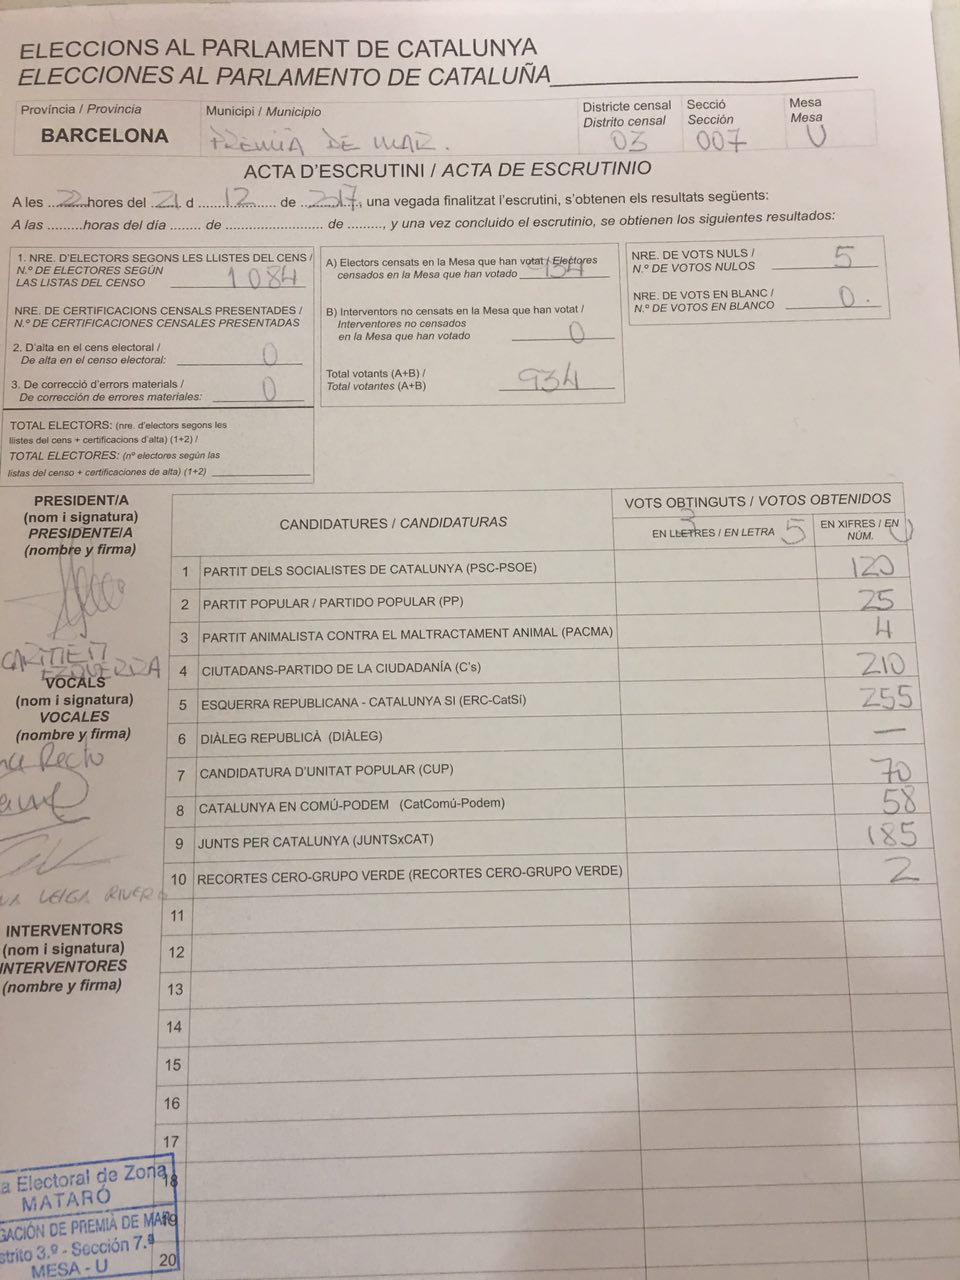 ELECCIONS AL PARLAMENT DE CATALUNYA
ELECCIONES AL PARLAMENTO DE CATALUÑA
Província / Provincia
BARCELONA
Municipi / Municipio
PREMIÀ DE MAR.
Districte censal
Distrito censal
03
Secció
Sección
007
Mesa
Mesa
U
ACTA D'ESCRUTINI / ACTA DE ESCRUTINIO
A les ..22..hores del .21. d ......12...... de ..2017.., una vegada finalitzat l'escrutini, s'obtenen els resultats següents:
A las .........horas del día ........ de ......................... de ........., y una vez concluido el escrutinio, se obtienen los siguientes resultados:
1. NRE. D'ELECTORS SEGONS LES LLISTES DEL CENS /
N.º DE ELECTORES SEGÚN
LAS LISTAS DEL CENSO 1084
NRE. DE CERTIFICACIONS CENSALS PRESENTADES /
N.º DE CERTIFICACIONES CENSALES PRESENTADAS
2. D'alta en el cens electoral /
De alta en el censo electoral: 0
3. De correcció d'errors materials /
De corrección de errores materiales: 0
TOTAL ELECTORS: (nre. d'electors segons les
llistes del cens + certificacions d'alta) (1+2) /
TOTAL ELECTORES: (nº electores según las
listas del censo + certificaciones de alta) (1+2)
A) Electors censats en la Mesa que han votat / Electores
censados en la Mesa que han votado 934
B) Interventors no censats en la Mesa que han votat /
Interventores no censados
en la Mesa que han votado 0
Total votants (A+B) /
Total votantes (A+B) 934
NRE. DE VOTS NULS /
N.º DE VOTOS NULOS 5
NRE. DE VOTS EN BLANC /
N.º DE VOTOS EN BLANCO 0.
PRESIDENT/A
(nom i signatura)
PRESIDENTE/A
(nombre y firma)
EZQUERRA
VOCALS
(nom i signatura)
VOCALES
(nombre y firma)
Recto
LEIGA RIVERO
INTERVENTORS
(nom i signatura)
INTERVENTORES
(nombre y firma)
CANDIDATURES / CANDIDATURAS
VOTS OBTINGUTS / VOTOS OBTENIDOS
3
EN LLETRES / EN LETRA 5
EN XIFRES / EN
NÚM. 0
1 PARTIT DELS SOCIALISTES DE CATALUNYA (PSC-PSOE) 120
2 PARTIT POPULAR / PARTIDO POPULAR (PP) 25
3 PARTIT ANIMALISTA CONTRA EL MALTRACTAMENT ANIMAL (PACMA) 4
4 CIUTADANS-PARTIDO DE LA CIUDADANÍA (C's) 210
5 ESQUERRA REPUBLICANA - CATALUNYA SI (ERC-CatSí) 255
6 DIÀLEG REPUBLICÀ (DIÀLEG) —
7 CANDIDATURA D'UNITAT POPULAR (CUP) 70
8 CATALUNYA EN COMÚ-PODEM (CatComú-Podem) 58
9 JUNTS PER CATALUNYA (JUNTSxCAT) 185
10 RECORTES CERO-GRUPO VERDE (RECORTES CERO-GRUPO VERDE) 2
11
12
13
14
15
16
17
18
19
20
a Electoral de Zona
MATARÓ
GACIÓN DE PREMIÀ DE MAR
strito 3.º - Sección 7.ª
MESA - U